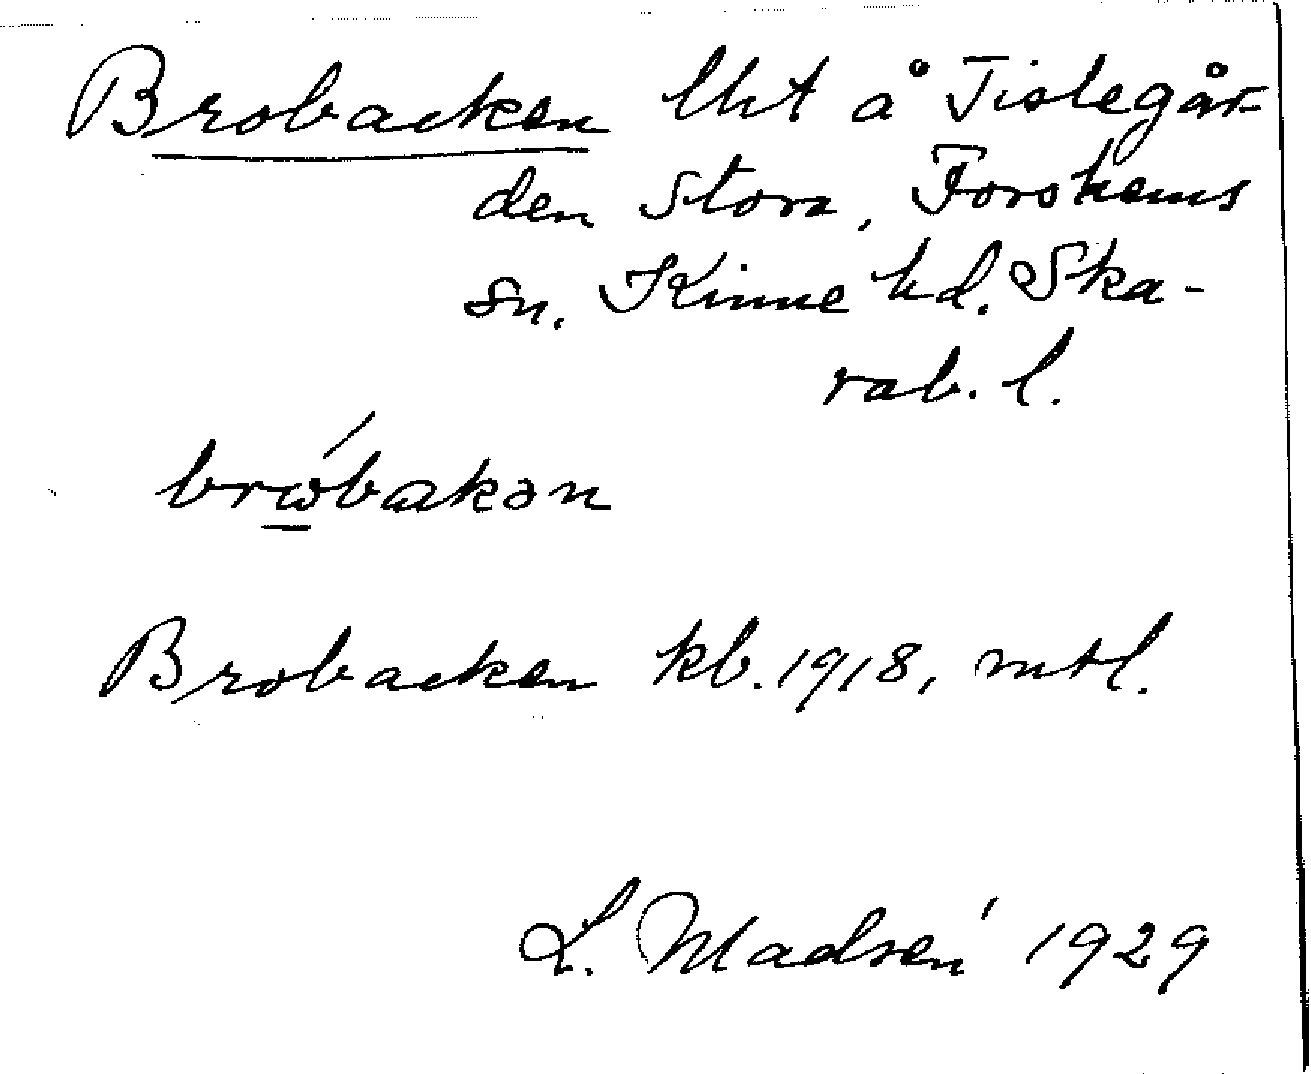 Brobacken lht å Tislegår-
den Stora, Forshems
sn. Kinne hd. Ska-
rab. l.
brώbakən
Brobacken kb. 1918, mtl.
L. Madsén 1929